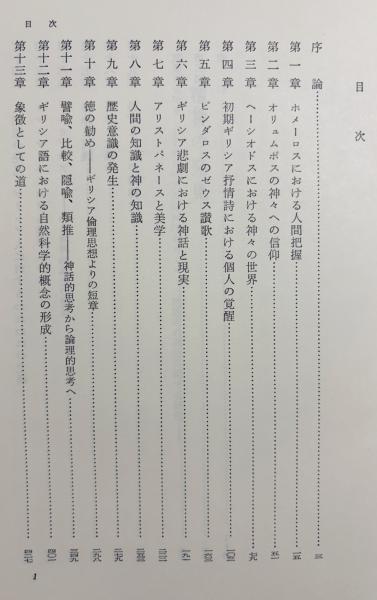 目次
目次
序論
第一章 ホメーロスにおける人間把握
第二章 オリュムポスの神々への信仰
第三章 ヘーシオドスにおける神々の世界
第四章 初期ギリシア抒情詩における個人の覚醒
第五章 ピンダロスのゼウス讃歌
第六章 ギリシア悲劇における神話と現実
第七章 アリストパネースと美学
第八章 人間の知識と神の知識
第九章 歴史意識の発生
第十章 徳の勧め――ギリシア倫理思想よりの短章
第十一章 譬喩、比較、隠喩、類推――神話的思考から論理的思考へ
第十二章 ギリシア語における自然科学的概念の形成
第十三章 象徴としての道
1